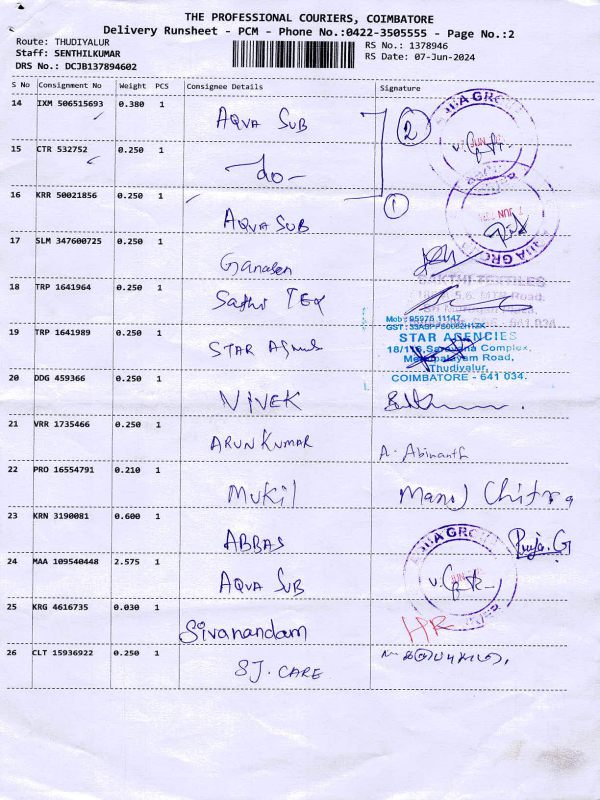 THE PROFESSIONAL COURIERS, COIMBATORE
Delivery Runsheet - PCM - Phone No.:0422-3505555 - Page No.:2
Route: THUDIYALUR
RS No.: 1378946
Staff: SENTHILKUMAR
RS Date: 07-Jun-2024
DRS No.: DCJB137894602
S No Consignment No Weight PCS Consignee Details Signature
14 IXM 506515693 0.380 1 AQVA SUB 2
15 CTR 532752 0.250 1 -do-
16 KRR 50021856 0.250 1 AQVA SUB 1
17 SLM 347600725 0.250 1 Ganasen
18 TRP 1641964 0.250 1 Sakthi TEX
SAKTHI TEXTILES
19 TRP 1641989 0.250 1 STAR
Mob : 95976 11147
STAR AGENCIES
Complex,
Road,
Thudiyalur,
COIMBATORE - 641 034.
20 DDG 459366 0.250 1 VIVEK
21 VRR 1735466 0.250 1 ARUN KUMAR A. Abinanth
22 PRO 16554791 0.210 1 MUKIL Manoj Chitra
23 KRN 3190081 0.600 1 ABBAS Puja. G
24 MAA 109540448 2.575 1 AQVA SUB
25 KRG 4616735 0.030 1 Sivanandam HR
26 CLT 15936922 0.250 1 SJ. CARE